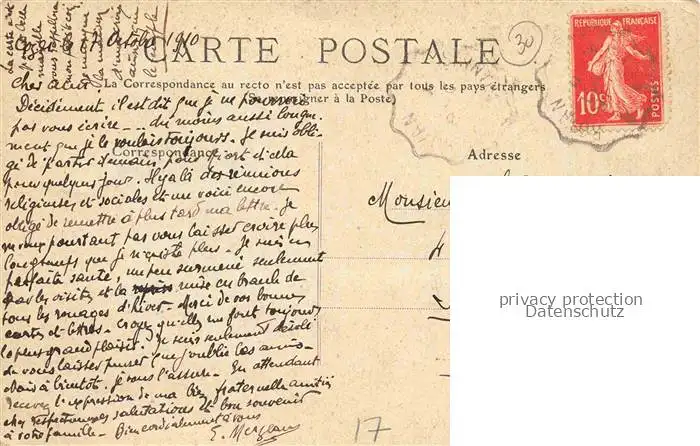 17 Octobre 1910
CARTE POSTALE
30
REPUBLIQUE FRANÇAISE
10c
POSTES
Cher ami
La Correspondance au recto n'est pas acceptée par tous les pays étrangers
(Se renseigner à la Poste)
Décidément il est dit que je ne pourrai
pas vous écrire - .. du moins aussi longue-
ment que je le voulais toujours. Je suis obli-
gé de partir demain pour
Correspondance
Adresse
pour quelques jours. Il y a là des réunions
religieuses et sociales et me voici encore
obligé de remettre à plus tard ma lettre. Je
ne veux pourtant pas vous laisser croire plus
longtemps que je n'existe plus. Je suis en
parfaite santé, un peu surmené seulement
par les visites et la mise en branle de
tous les rouages d'hiver. Merci de vos bonnes
cartes et lettres. Croyez qu'elles me font toujours
le plus grand plaisir. Je suis seulement désolé
de vous laisser penser que j'oublie les amis.
à bientôt. Je vous l'assure. En attendant
recevez l'expression de ma bien fraternelle amitié
respectueuses salutations et bon souvenir
à votre famille. Bien cordialement à vous
E.
Monsieur
privacy protection
Datenschutz
17